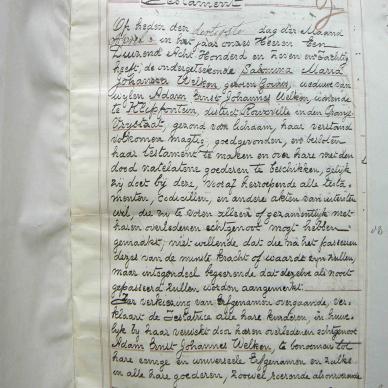 Testament
Op heden den dag der Maand
in het jaar onzes Heeren Een
Duizend Acht Honderd en Zeven en Tachtig
heeft de ondergeteekende Maria
Johanna Welken, geboren weduwe van
wijlen Adam Ernst Johannes Welken, wonende
te Klipfontein, district in den Oranje
Vrijstaat, gezond van lichaam, haar verstand
volkomen magtig, goedgevonden, en besloten
haar testament te maken en over hare met den
dood natelatene goederen te beschikken, gelijk
zij doet bij deze, vooraf herroepende alle testa-
menten, codicillen, en andere akten van uitersten
wil, die zij te voren alleen of gezamentlijk met
haren overledenen echtgenoot mogt hebben
gemaakt, niet willende, dat die na het passeeren
dezes van de minste kracht of waarde zijn zullen,
maar integendeel begeerende dat dezelve als nooit
gepasseerd zullen worden aangemerkt.
Ter verkiezing van Erfgenamen overgaande, ver-
klaart de Testatrice alle hare kinderen, in huwe-
lijk bij haar verwekt door haren overledenen echtgenoot
Adam Ernst Johannes Welken, te benoemen tot
hare eenige en universeele Erfgenamen en zulks
in alle haar goederen, zoowel roerende als onroerende